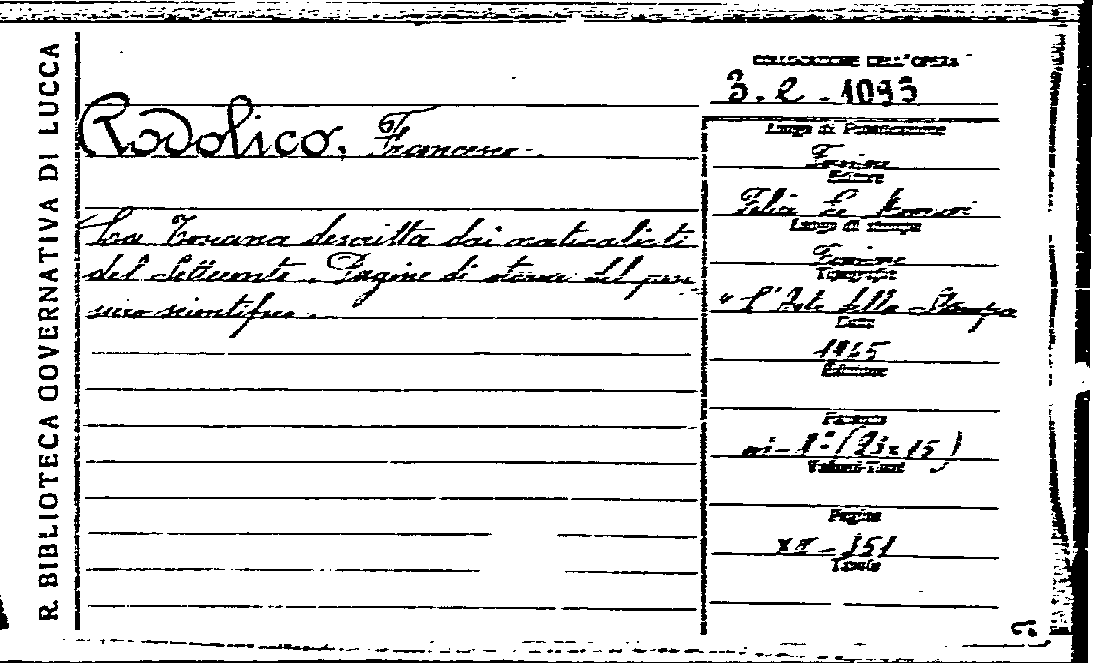 R. BIBLIOTECA GOVERNATIVA DI LUCCA
COLLOCAZIONE DELL'OPERA
3. 2. 1093
Rodolico, Francesco.
La Toscana descritta dai naturalisti
del Settecento. Pagine di storia del pen
siero scientifico.
Luogo di Pubblicazione
Firenze
Editore
Felice Le Monnier
Luogo di stampa
Firenze
Tipografia
"L'Arte della Stampa
Data
1945
Edizione
Formato
in-8° (23x15)
Volumi-Tomi
Pagine
351
Tavole